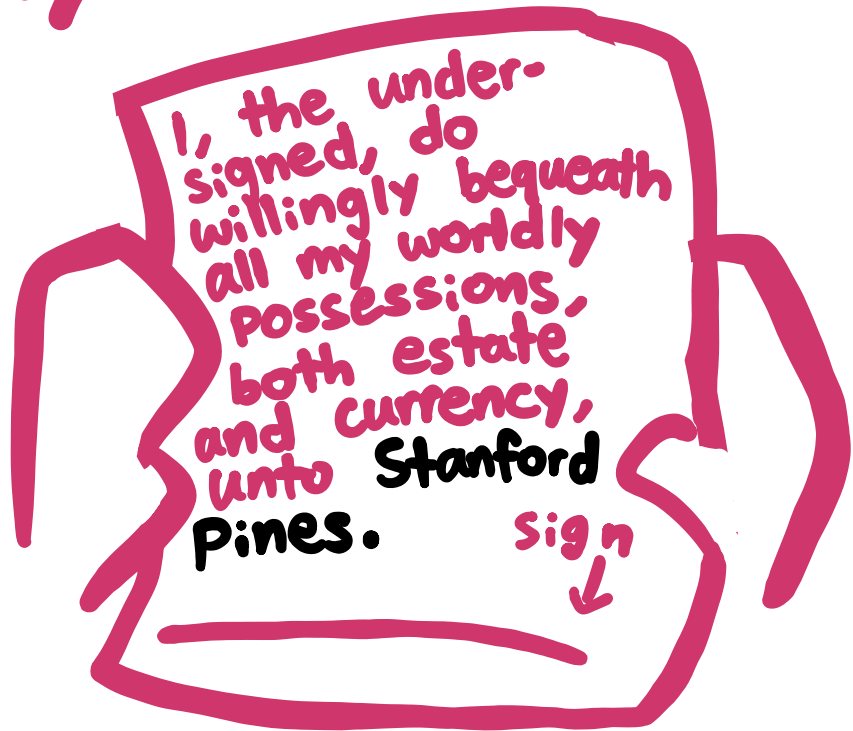 I, the under-
signed, do
willingly bequeath
all my worldly
possessions,
both estate
and currency,
unto Stanford
Pines.
sign